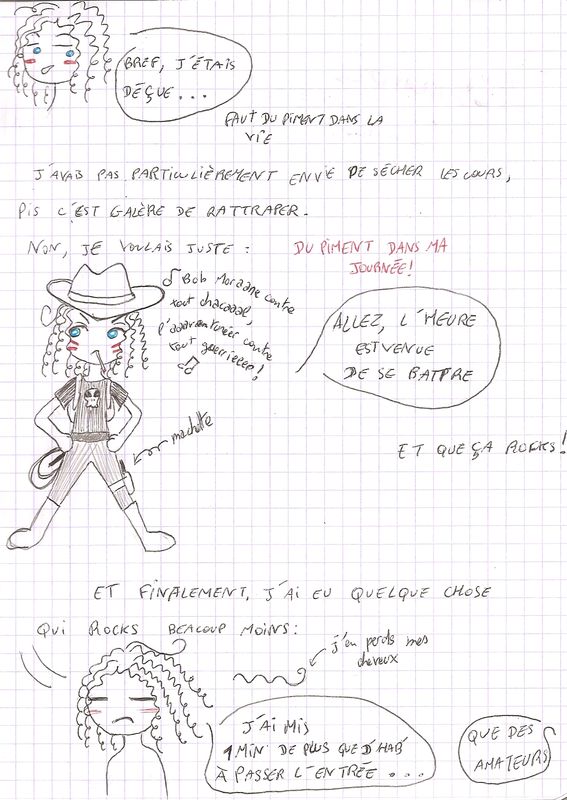 BREF, J'ÉTAIS
DÉÇUE...
FAUT DU PIMENT DANS LA
VIE
J'AVAIS PAS PARTICULIÈREMENT ENVIE DE SÉCHER LES COURS,
PIS C'EST GALÈRE DE RATTRAPER.
NON, JE VOULAIS JUSTE :
DU PIMENT DANS MA
JOURNÉE!
Bob Moraane contre
tout chacaaal,
l'aaaventurier contre
tout guerrieeer!
ALLEZ, L'HEURE
EST VENUE
DE SE BATTRE
machette
ET QUE ÇA ROCKS!
ET FINALEMENT, J'AI EU QUELQUE CHOSE
QUI ROCKS BEACOUP MOINS:
j'en perds mes
cheveux
J'AI MIS
1 MIN DE PLUS QUE D'HAB'
À PASSER L'ENTRÉE...
QUE DES
AMATEURS